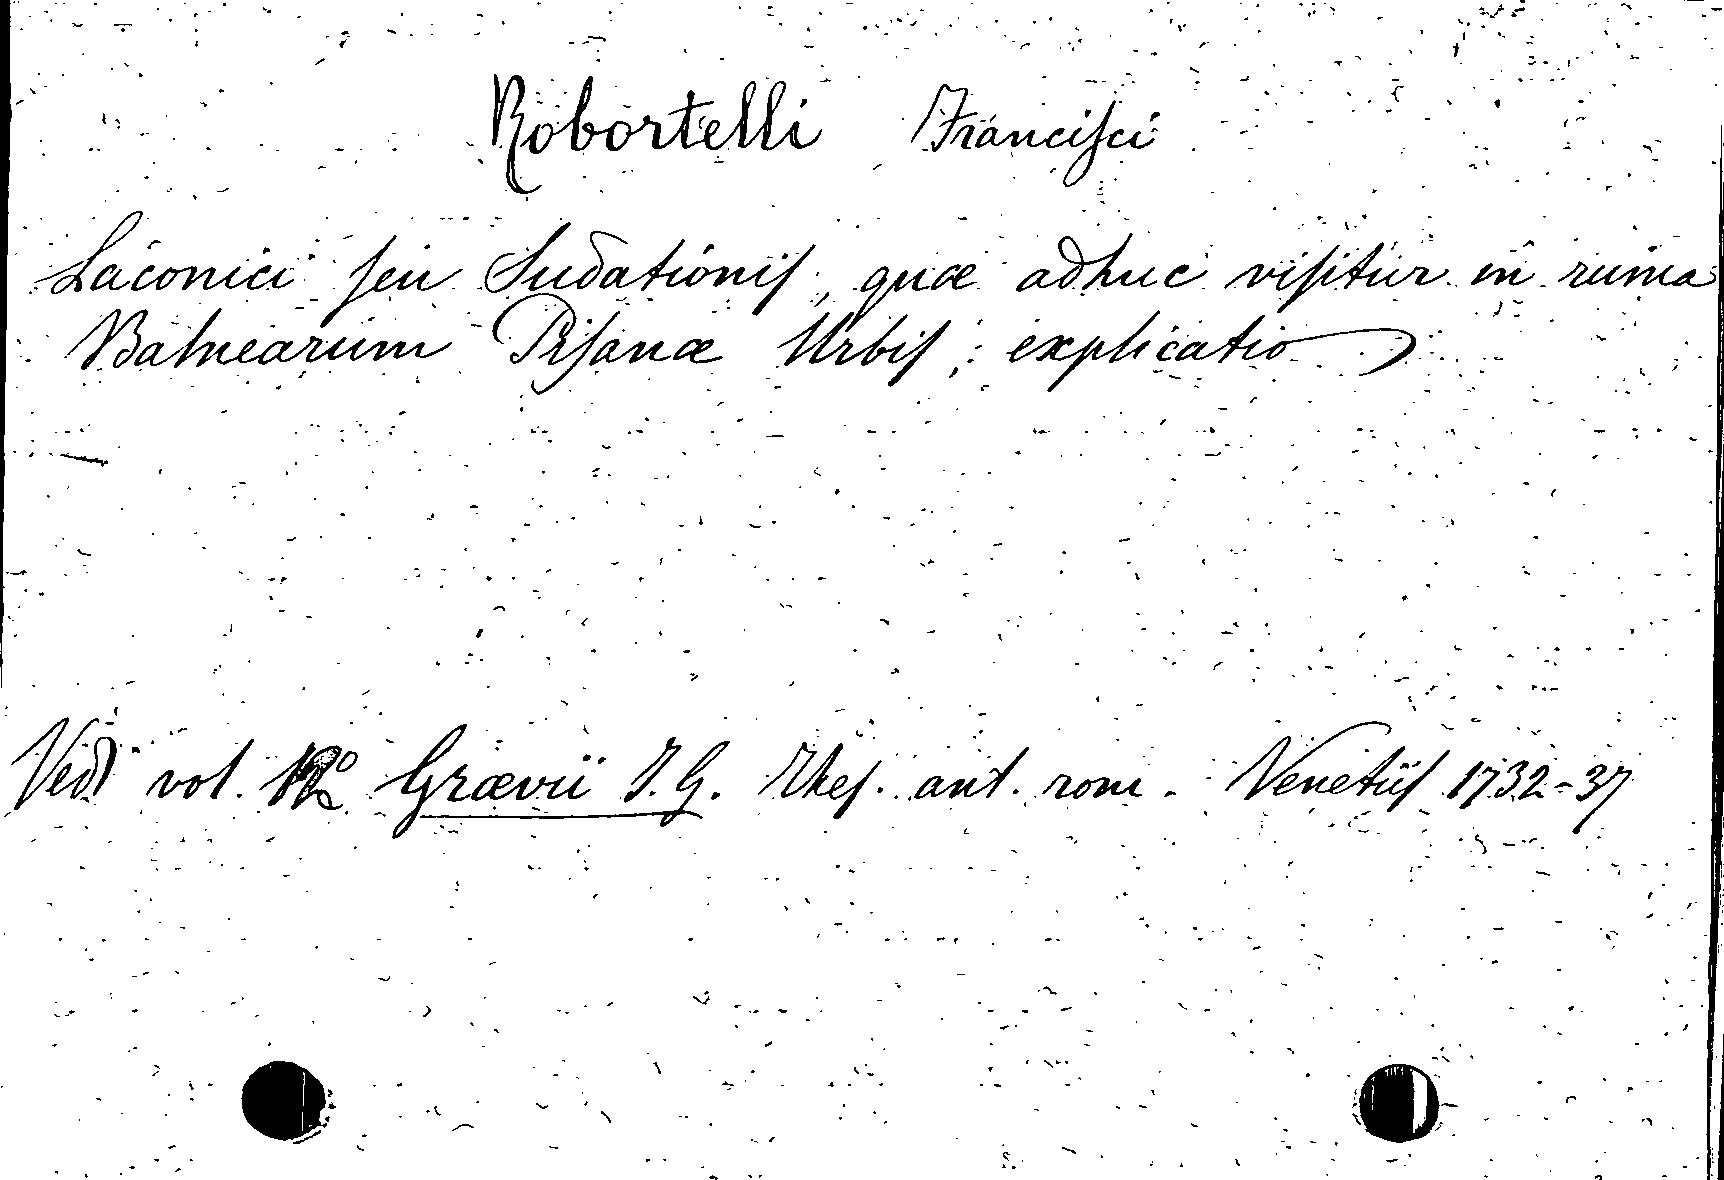 Robortelli Francisci
Laconici seu Sudationis, quæ adhuc visitur in ruina
Balnearum Pisanæ Urbis; explicatio
Vedi vol. 12º Grævii J. G. Thes. ant. rom. Venetiis 1732-37